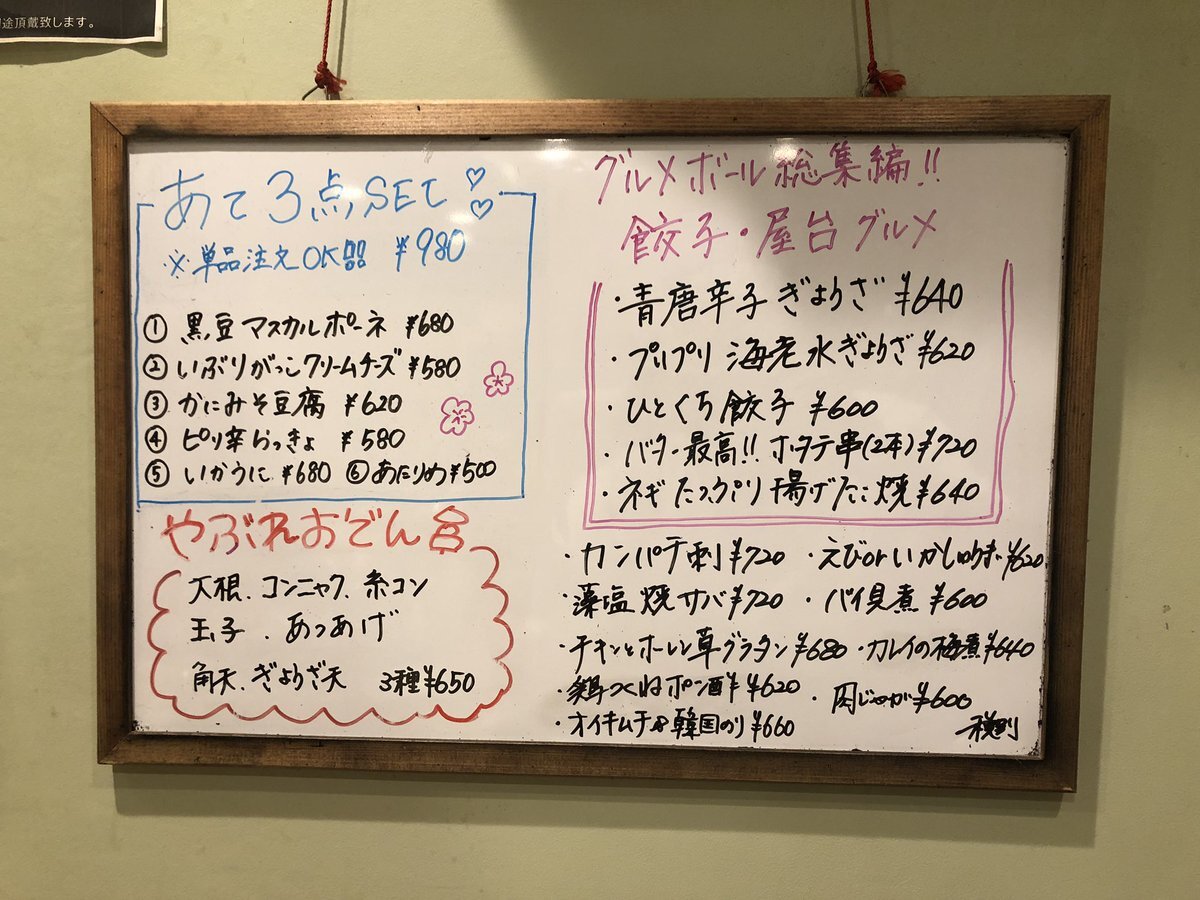 途頂戴致します。
あて3点SET♡♡
※単品注文OK ¥980
① 黒豆マスカルポーネ ¥680
② いぶりがっこクリームチーズ ¥580
③ かにみそ豆腐 ¥620
④ ピリ辛らっきょ ¥580
⑤ いかうに ¥680 ⑥あたりめ¥500
やぶれおでん
大根.コンニャク.糸コン
玉子.あつあげ
角天.ぎょうざ天 3種¥650
グルメボール総集編!!
餃子・屋台グルメ
・青唐辛子ぎょうざ ¥640
・プリプリ 海老水ぎょうざ ¥620
・ひとくち餃子 ¥600
・バター最高!! ホタテ串(2本)¥720
・ネギたっぷり揚げたこ焼¥640
・カンパチ刺¥720 ・えびorいかしゅうまい¥620
・藻塩焼サバ¥720 ・バイ貝煮 ¥600
・チキンとホーレン草グラタン¥680 ・カレイの梅煮¥640
・鶏つくねポン酢 ¥620 ・肉じゃが¥600
・オイキムチ&韓国のり¥660 税別